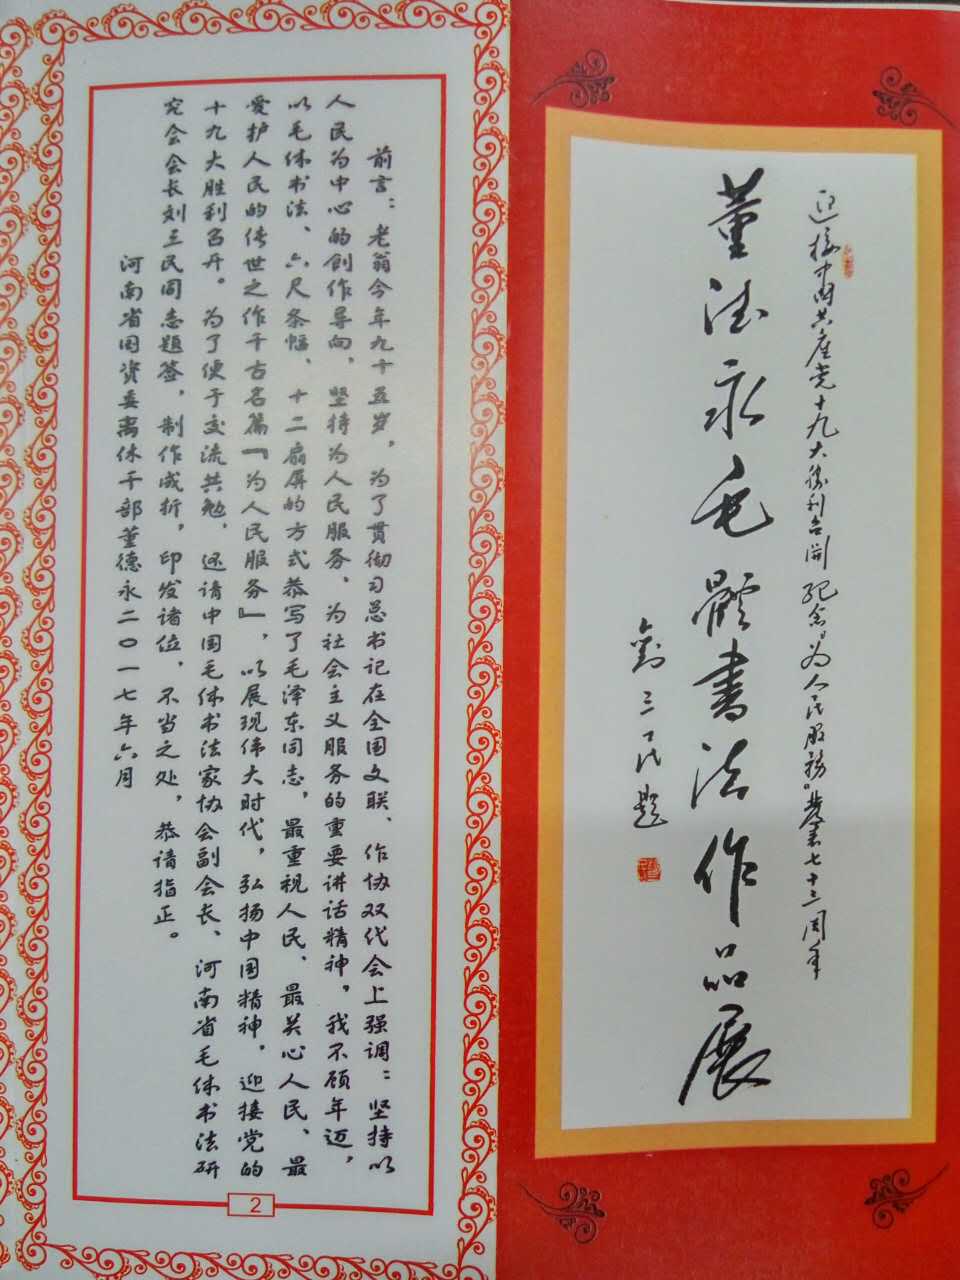 迎接中国共产党十九大胜利召開 纪念"为人民服務"发表七十三周年
董德永毛體書法作品展
劉三民题
前言：老翁今年九十五岁，为了贯彻习总书记在全国文联、作协双代会上强调：坚持以
人民为中心的創作导向，坚持为人民服务、为社会主义服务的重要讲话精神，我不顾年迈，
以毛体书法、六尺条幅、十二扇屏的方式恭写了毛泽东同志，最重视人民、最关心人民、最
爱护人民的传世之作千古名篇『为人民服务』，以展现伟大时代，弘扬中国精神，迎接党的
十九大胜利召开。为了便于交流共勉，还请中国毛体书法家协会副会长、河南省毛体书法研
究会会长刘三民同志题签，制作成折，印发诸位，不当之处，恭请指正。
河南省国资委离休干部董德永二〇一七年六月
2